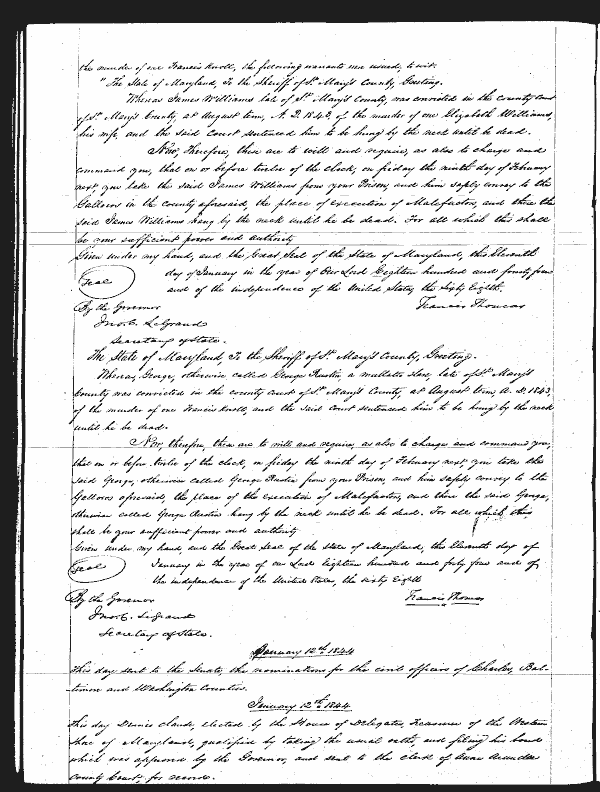 the murder of one Francis Knott, the following warrants were issued, to wit:
" The State of Maryland, To the Sheriff of St. Mary's County, Greeting.
Whereas James Williams late of St. Mary's County, was convicted in the county court
of St. Mary's County, at August term, A. D. 1843, of the murder of one Elizabeth Williams,
his wife, and the said Court sentenced him to be hung by the neck until he be dead.
Now, Therefore, these are to will and require, as also to charge and
command you, that on or before twelve of the clock, on friday the ninth day of February
next you take the said James Williams from your Prison, and him safely convey to the
Gallows in the county aforesaid, the place of execution of Malefactors, and there the
said James Williams hang by the neck until he be dead. For all which this shall
be your sufficient power and authority
Given under my hand, and the Great Seal of the State of Maryland, this Eleventh
day of January in the year of Our Lord Eighteen hundred and forty four
and of the independence of the United States, the sixty Eighth.
Seal
By the Governor
Francis Thomas
Jno. C. LeGrand
Secretary of State.
The State of Maryland, To the Sheriff of St. Mary's County, Greeting.
Whereas, George, otherwise called George Rustin, a mulatto slave, late of St. Mary's
County was convicted in the county court of St. Mary's County, at August term, A. D. 1843,
of the murder of one Francis Knott, and the said Court sentenced him to be hung by the neck
until he be dead.
Now, therefore, these are to will and require, as also to charge and command you,
that on or before twelve of the clock, on friday the ninth day of February next you take the
said George, otherwise called George Rustin from your Prison, and him safely convey to the
Gallows aforesaid, the place of the execution of Malefactors, and there the said George,
otherwise called George Rustin hang by the neck until he be dead. For all which this
shall be your sufficient power and authority
Given under my hand, and the Great Seal of the State of Maryland, this Eleventh day of
January in the year of our Lord Eighteen hundred and forty four and of
the independence of the United States, the sixty Eighth
Seal
By the Governor
Francis Thomas
Jno. C. LeGrand
Secretary of State.
January 12th 1844
This day sent to the Senate, the nominations for the civil officers of Charles, Bal-
timore and Washington Counties.
January 12th 1844.
This day Dennis Claude, elected by the House of Delegates, Treasurer of the Western
Shore of Maryland, qualified by taking the usual oaths, and filing his bond
which was approved by the Governor, and sent to the Clerk of Anne Arundel
County Court, for record.